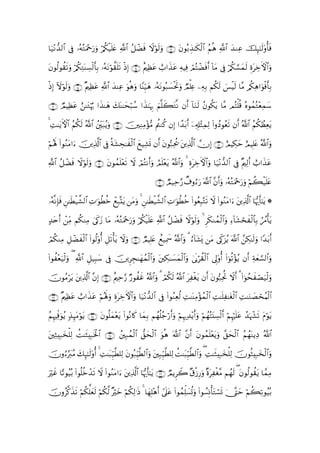 فَأُو۟لَٰٓئِكَ عِندَ ٱللَّهِ هُمُ ٱلْكَٰذِبُونَ ۝١٣ وَلَوْلَا فَضْلُ ٱللَّهِ عَلَيْكُمْ وَرَحْمَتُهُۥ فِى ٱلدُّنْيَا
وَٱلْءَاخِرَةِ لَمَسَّكُمْ فِى مَآ أَفَضْتُمْ فِيهِ عَذَابٌ عَظِيمٌ ۝١٤ إِذْ تَلَقَّوْنَهُۥ بِأَلْسِنَتِكُمْ وَتَقُولُونَ
بِأَفْوَاهِكُم مَّا لَيْسَ لَكُم بِهِۦ عِلْمٌ وَتَحْسَبُونَهُۥ هَيِّنًا وَهُوَ عِندَ ٱللَّهِ عَظِيمٌ ۝١٥ وَلَوْلَآ إِذْ
سَمِعْتُمُوهُ قُلْتُم مَّا يَكُونُ لَنَآ أَن نَّتَكَلَّمَ بِهَٰذَا سُبْحَٰنَكَ هَٰذَا بُهْتَٰنٌ عَظِيمٌ ۝١٦
يَعِظُكُمُ ٱللَّهُ أَن تَعُودُوا۟ لِمِثْلِهِۦٓ أَبَدًا إِن كُنتُم مُّؤْمِنِينَ ۝١٧ وَيُبَيِّنُ ٱللَّهُ لَكُمُ ٱلْءَايَٰتِ ۚ
وَٱللَّهُ عَلِيمٌ حَكِيمٌ ۝١٨ إِنَّ ٱلَّذِينَ يُحِبُّونَ أَن تَشِيعَ ٱلْفَٰحِشَةُ فِى ٱلَّذِينَ ءَامَنُوا۟ لَهُمْ
عَذَابٌ أَلِيمٌ فِى ٱلدُّنْيَا وَٱلْءَاخِرَةِ ۚ وَٱللَّهُ يَعْلَمُ وَأَنتُمْ لَا تَعْلَمُونَ ۝١٩ وَلَوْلَا فَضْلُ ٱللَّهِ
عَلَيْكُمْ وَرَحْمَتُهُۥ وَأَنَّ ٱللَّهَ رَءُوفٌ رَّحِيمٌ ۝٢٠
۞ يَٰٓأَيُّهَا ٱلَّذِينَ ءَامَنُوا۟ لَا تَتَّبِعُوا۟ خُطُوَٰتِ ٱلشَّيْطَٰنِ ۚ وَمَن يَتَّبِعْ خُطُوَٰتِ ٱلشَّيْطَٰنِ فَإِنَّهُۥ
يَأْمُرُ بِٱلْفَحْشَآءِ وَٱلْمُنكَرِ ۚ وَلَوْلَا فَضْلُ ٱللَّهِ عَلَيْكُمْ وَرَحْمَتُهُۥ مَا زَكَىٰ مِنكُم مِّنْ أَحَدٍ
أَبَدًا وَلَٰكِنَّ ٱللَّهَ يُزَكِّى مَن يَشَآءُ ۗ وَٱللَّهُ سَمِيعٌ عَلِيمٌ ۝٢١ وَلَا يَأْتَلِ أُو۟لُوا۟ ٱلْفَضْلِ مِنكُمْ
وَٱلسَّعَةِ أَن يُؤْتُوٓا۟ أُو۟لِى ٱلْقُرْبَىٰ وَٱلْمَسَٰكِينَ وَٱلْمُهَٰجِرِينَ فِى سَبِيلِ ٱللَّهِ ۖ وَلْيَعْفُوا۟
وَلْيَصْفَحُوٓا۟ ۗ أَلَا تُحِبُّونَ أَن يَغْفِرَ ٱللَّهُ لَكُمْ ۗ وَٱللَّهُ غَفُورٌ رَّحِيمٌ ۝٢٢ إِنَّ ٱلَّذِينَ يَرْمُونَ
ٱلْمُحْصَنَٰتِ ٱلْغَٰفِلَٰتِ ٱلْمُؤْمِنَٰتِ لُعِنُوا۟ فِى ٱلدُّنْيَا وَٱلْءَاخِرَةِ وَلَهُمْ عَذَابٌ عَظِيمٌ ۝٢٣
يَوْمَ تَشْهَدُ عَلَيْهِمْ أَلْسِنَتُهُمْ وَأَيْدِيهِمْ وَأَرْجُلُهُم بِمَا كَانُوا۟ يَعْمَلُونَ ۝٢٤ يَوْمَئِذٍ يُوَفِّيهِمُ
ٱللَّهُ دِينَهُمُ ٱلْحَقَّ وَيَعْلَمُونَ أَنَّ ٱللَّهَ هُوَ ٱلْحَقُّ ٱلْمُبِينُ ۝٢٥ ٱلْخَبِيثَٰتُ لِلْخَبِيثِينَ
وَٱلْخَبِيثُونَ لِلْخَبِيثَٰتِ ۖ وَٱلطَّيِّبَٰتُ لِلطَّيِّبِينَ وَٱلطَّيِّبُونَ لِلطَّيِّبَٰتِ ۚ أُو۟لَٰٓئِكَ مُبَرَّءُونَ
مِمَّا يَقُولُونَ ۖ لَهُم مَّغْفِرَةٌ وَرِزْقٌ كَرِيمٌ ۝٢٦ يَٰٓأَيُّهَا ٱلَّذِينَ ءَامَنُوا۟ لَا تَدْخُلُوا۟ بُيُوتًا غَيْرَ
بُيُوتِكُمْ حَتَّىٰ تَسْتَأْنِسُوا۟ وَتُسَلِّمُوا۟ عَلَىٰٓ أَهْلِهَا ۚ ذَٰلِكُمْ خَيْرٌ لَّكُمْ لَعَلَّكُمْ تَذَكَّرُونَ